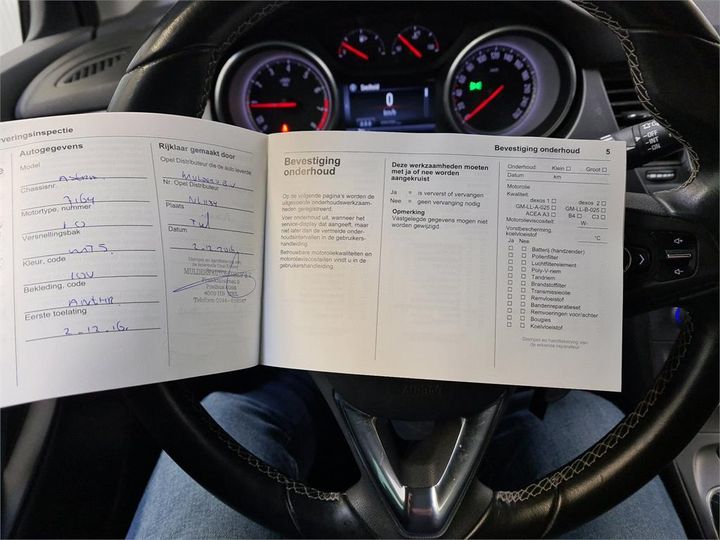 veringsinspectie
Autogegevens
Model
Astra
Chassisnr.
7164
Motortype, nummer
1.0
Versnellingsbak
Kleur, code
Bekleding, code
ANTHR
Eerste toelating
2.12.16.
Rijklaar gemaakt door
Opel Distributeur die de auto leverde
Nr. Opel Distributeur
Plaats
Tiel
Datum
Stempel en handtekening
Bevestiging
onderhoud
Op de volgende pagina's worden de
uitgevoerde onderhoudswerkzaam-
heden geregistreerd.
Voer onderhoud uit, wanneer het
service-display dat aangeeft, maar
niet later dan de vermelde onder-
houdsintervallen in de gebruikers-
handleiding.
Betrouwbare motoroliekwaliteiten en
motorolieviscositeiten vindt u in de
gebruikershandleiding.
Deze werkzaamheden moeten
met ja of nee worden
aangekruist
Ja = is ververst of vervangen
Nee = geen vervanging nodig
Opmerking
Vastgelegde gegevens mogen niet
worden gewijzigd.
Bevestiging onderhoud 5
Onderhoud: Klein Groot
Datum km
Motorolie
Kwaliteit: dexos 1 dexos 2
GM-LL-A-025 GM-LL-B-025
ACEA A3 B4 C3
Motorolieviscositeit: W-
Vorstbescherming,
koelvloeistof °C
Ja Nee
Batterij (handzender)
Pollenfilter
Luchtfilterelement
Poly-V-riem
Tandriem
Brandstoffilter
Transmissieolie
Remvloeistof
Bandenreparatieset
Remvoeringen voor/achter
Bougies
Koelvloeistof
Stempel en handtekening van
de erkende reparateur
Snelheid
0
km/h
OFF
INT